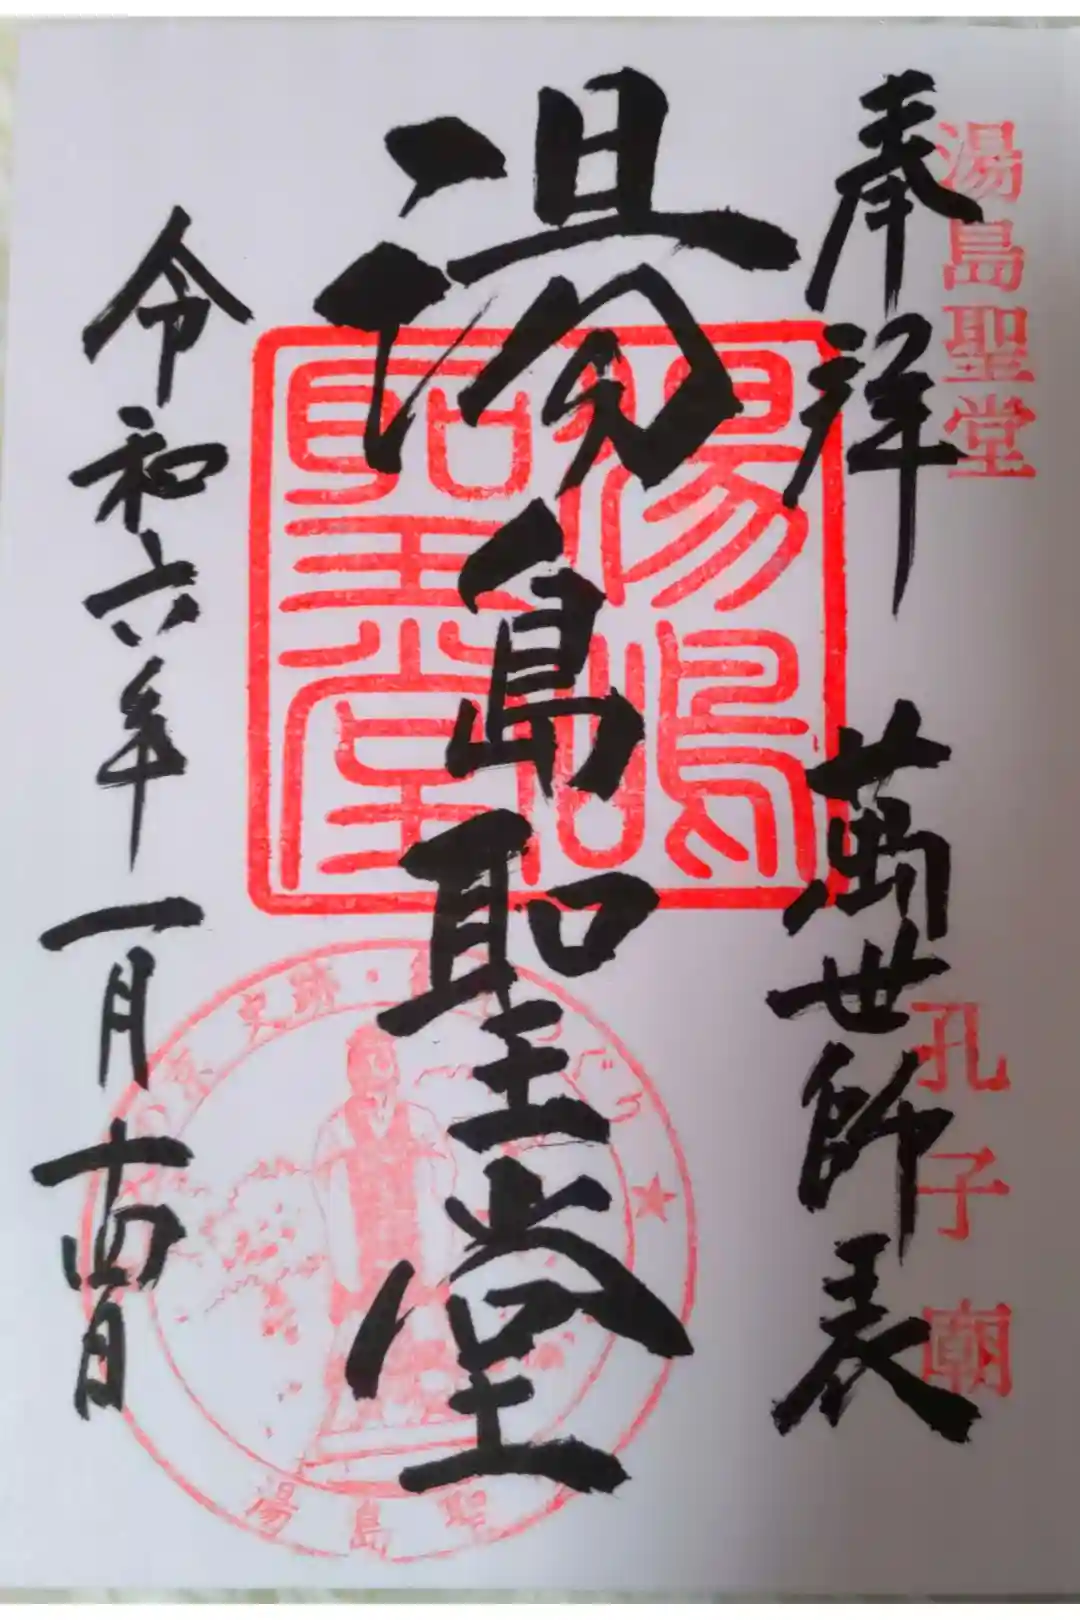 湯島聖堂
孔子廟
奉拝
萬世師表
湯島聖堂
湯嶋聖堂
令和六年一月十四日
史跡・
めぐり
湯島聖